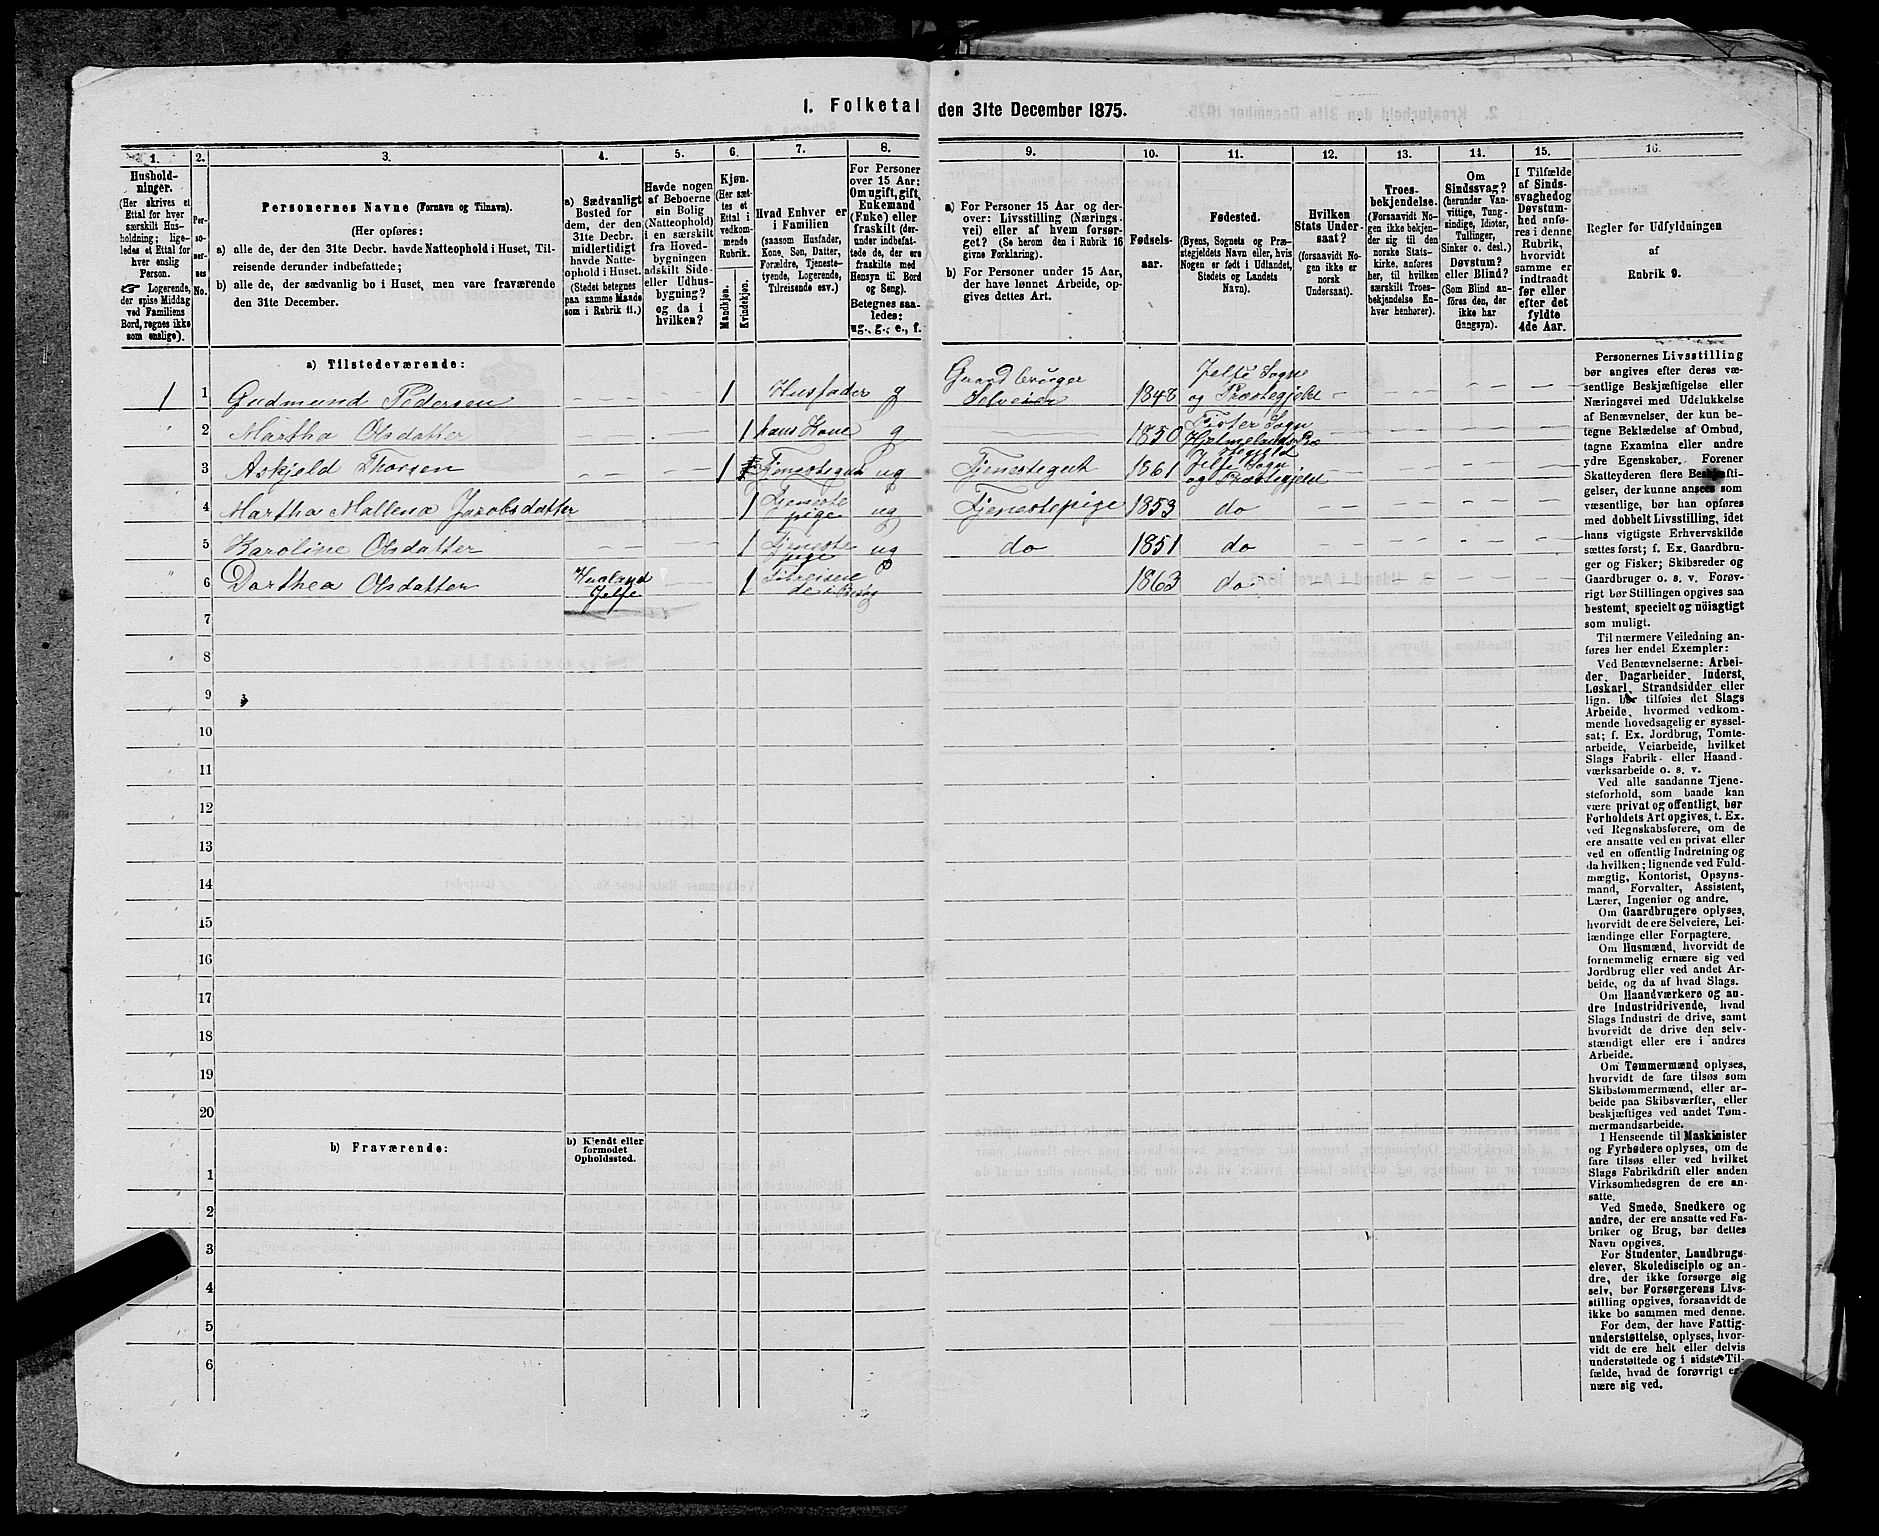 1. Folketal den 31te December 1875.
1. 2. 3. 4. 5. 6. 7. 8. 9. 10. 11. 12. 13. 14. 15. 16.
Hushold-
ninger.
(Her skrives et
Ettal for hver
særskilt Hus-
holdning; lige-
ledes et Ettal for
hver enslig
Person.
☞ Logerende,
der spise Middag
ved Familiens
Bord, regnes ikke
som enslige).
Per-
so-
ner-
nes
No.
Personernes Navne (Fornavn og Tilnavn).
(Her opføres:
a) alle de, der den 31te Decbr. havde Natteophold i Huset, Til-
reisende derunder indbefattede;
b) alle de, der sædvanlig bo i Huset, men vare fraværende
den 31te December.
a) Sædvanligt
Bosted for
dem, der den
31te Decbr.
midlertidigt
havde Natte-
ophold i Huset.
(Stedet betegnes
paa samme Maade
som i Rubrik 11.)
Havde nogen
af Beboerne
sin Bolig
(Natteophold)
i en særskilt
fra Hoved-
bygningen
adskilt Side-
eller Udhus-
bygning?
og da i
hvilken?
Kjøn.
(Her sæt-
tes et
Ettal i
vedkom-
mende
Rubrik.
Mandkjøn.
Kvindekjøn.
Hvad Enhver er
i Familien
(saasom Husfader,
Kone, Søn, Datter,
Forældre, Tjeneste-
tyende, Logerende,
Tilreisende osv.)
For Personer
over 15 Aar:
Om ugift, gift,
Enkemand
(Enke) eller
fraskilt (der-
under indbefat-
tede de, der ere
fraskilte med
Hensyn til Bord
og Seng).
Betegnes saa-
ledes:
ug., g., e., f.
a) For Personer 15 Aar og der-
over: Livsstilling (Nærings-
vei) eller af hvem forsør-
get? (Se herom den i Rubrik 16
givne Forklaring).
b) For Personer under 15 Aar,
der have lønnet Arbeide, op-
gives dettes Art.
Fødsels-
aar.
Fødested.
(Byens, Sognets og Præ-
stegjeldets Navn eller, hvis
Nogen er født i Udlandet,
Stedets og Landets
Navn).
Hvilken
Stats Under-
saat?
(forsaavidt No-
gen ikke er
norsk
Undersaat).
Troes-
bekjendelse.
(Forsaavidt No-
gen ikke bekjen-
der sig til den
norske Stats-
kirke, anføres
her, til hvilken
særskilt Troes-
bekjendelse En-
hver henhører).
Om
Sindssvag?
(herunder Van-
vittige, Tung-
sindige, Idioter,
Tullinger,
Sinker o. desl.)
Døvstum?
eller Blind?
(Som Blind an-
føres den, der
ikke har
Gangsyn).
I Tilfælde
af Sinds-
svaghed og
Døvstum-
hed anfø-
res i denne
Rubrik,
hvorvidt
samme er
indtraadt
før eller
efter det
fyldte
4de Aar.
Regler for Udfyldningen
af
Rubrik 9.
a) Tilstedeværende:
1 1 Gudmund Pedersen — — — — 1 Husfader g Gaardbruger Selveier 1848 Jelse Sogn og Præstegjeld — — — — —
2 Martha Olsdatter — — — — 1 hans Kone g 1850 Fister Sogn Hjelmelands Præstegjeld — — — — —
3 Askjold Thorsen — — — — 1 Tjenestegut ug Tjenestegut 1861 Jelse Sogn og Præstegjeld — — — — —
4 Martha Mallena Jacobsdatter 1 Tjenestepige ug Tjenestepige 1853 do — — — — —
5 Karoline Olsdatter — — — — 1 Tjenestepige ug do 1851 do — — — — —
6 Dorthea Olsdatter Hugland Jelse — — 1 Tilreisende i Besøg 1863 do — — — — —
7
8
9
10
11
12
13
14
15
16
17
18
19
20
b) Fraværende:
b) Kjendt eller
formodet
Opholdssted.
1
2
3
4
5
6
Personernes Livsstilling
bør angives efter deres væ-
sentlige Beskjæftigelse eller
Næringsvei med Udelukkelse
af Benævnelser, der kun be-
tegne Beklædelse af Ombud,
tagne Examina eller andre
ydre Egenskaber. Forener
Skatteyderen flere Beskjæfti-
gelser, der kunne ansees som
væsentlige, bør han opføres
med dobbelt Livsstilling, idet
hans vigtigste Erhvervskilde
sættes først; f. Ex. Gaardbru-
ger og Fisker; Skibsreder og
Gaardbruger o. s. v. Forøv-
rigt bør Stillingen opgives saa
bestemt, specielt og nöiagtigt
som muligt.
Til nærmere Veiledning an-
føres her endel Exempler:
Ved Benævnelserne: Arbei-
der, Dagarbeider, Inderst,
Løskarl, Strandsidder eller
lign. bør tilføies det Slags
Arbeide, hvormed vedkom-
mende hovedsagelig er syssel-
sat; f. Ex. Jordbrug, Tomte-
arbeide, Veiarbeide, hvilket
Slags Fabrik- eller Haand-
værksarbeide o. s. v.
Ved alle saadanne Tjene-
steforhold, som baade kan
være privat og offentligt, bør
Forholdets Art opgives, t. Ex.
ved Regnskabsførere, om de
ere ansatte ved en privat eller
ved en offentlig Indretning og
da hvilken; lignende ved Fuld-
mægtig, Kontorist, Opsyns-
mand, Forvalter, Assistent,
Lærer, Ingeniør og andre.
Om Gaardbrugere oplyses,
hvorvidt de ere Selveiere, Lei-
lændinge eller Forpagtere.
Om Husmænd, hvorvidt de
fornemmelig ernære sig ved
Jordbrug eller ved andet Ar-
beide, og da af hvad Slags.
Om Haandværkere og an-
dre Industridrivende, hvad
Slags Industri de drive, samt
hvorvidt de drive den selv-
stændigt eller ere i andres
Arbeide.
Om Tømmermænd oplyses,
hvorvidt de fare tilsøs som
Skibstømmermænd, eller ar-
beide paa Skibsværfter, eller
beskjæftiges ved andet Tøm-
mermandsarbeide.
I Henseende til Maskinister
og Fyrbødere oplyses, om de
fare tilsøs eller ved hvilket
Slags Fabrikdrift eller anden
Virksomhedsgren de ere an-
satte.
Ved Smede, Snedkere og
andre, der ere ansatte ved Fa-
briker og Brug, bør dettes
Navn opgives.
For Studenter, Landbrugs-
elever, Skoledisciple og an-
dre, der ikke forsørge sig
selv, bør Forsørgerens Livs-
stilling opgives, forsaavidt de
ikke bo sammen med denne.
For dem, der have Fattig-
understøttelse, oplyses, hvor-
vidt de ere helt eller delvis
understøttede og i sidste Til-
fælde, hvad de forøvrigt er-
nære sig ved.